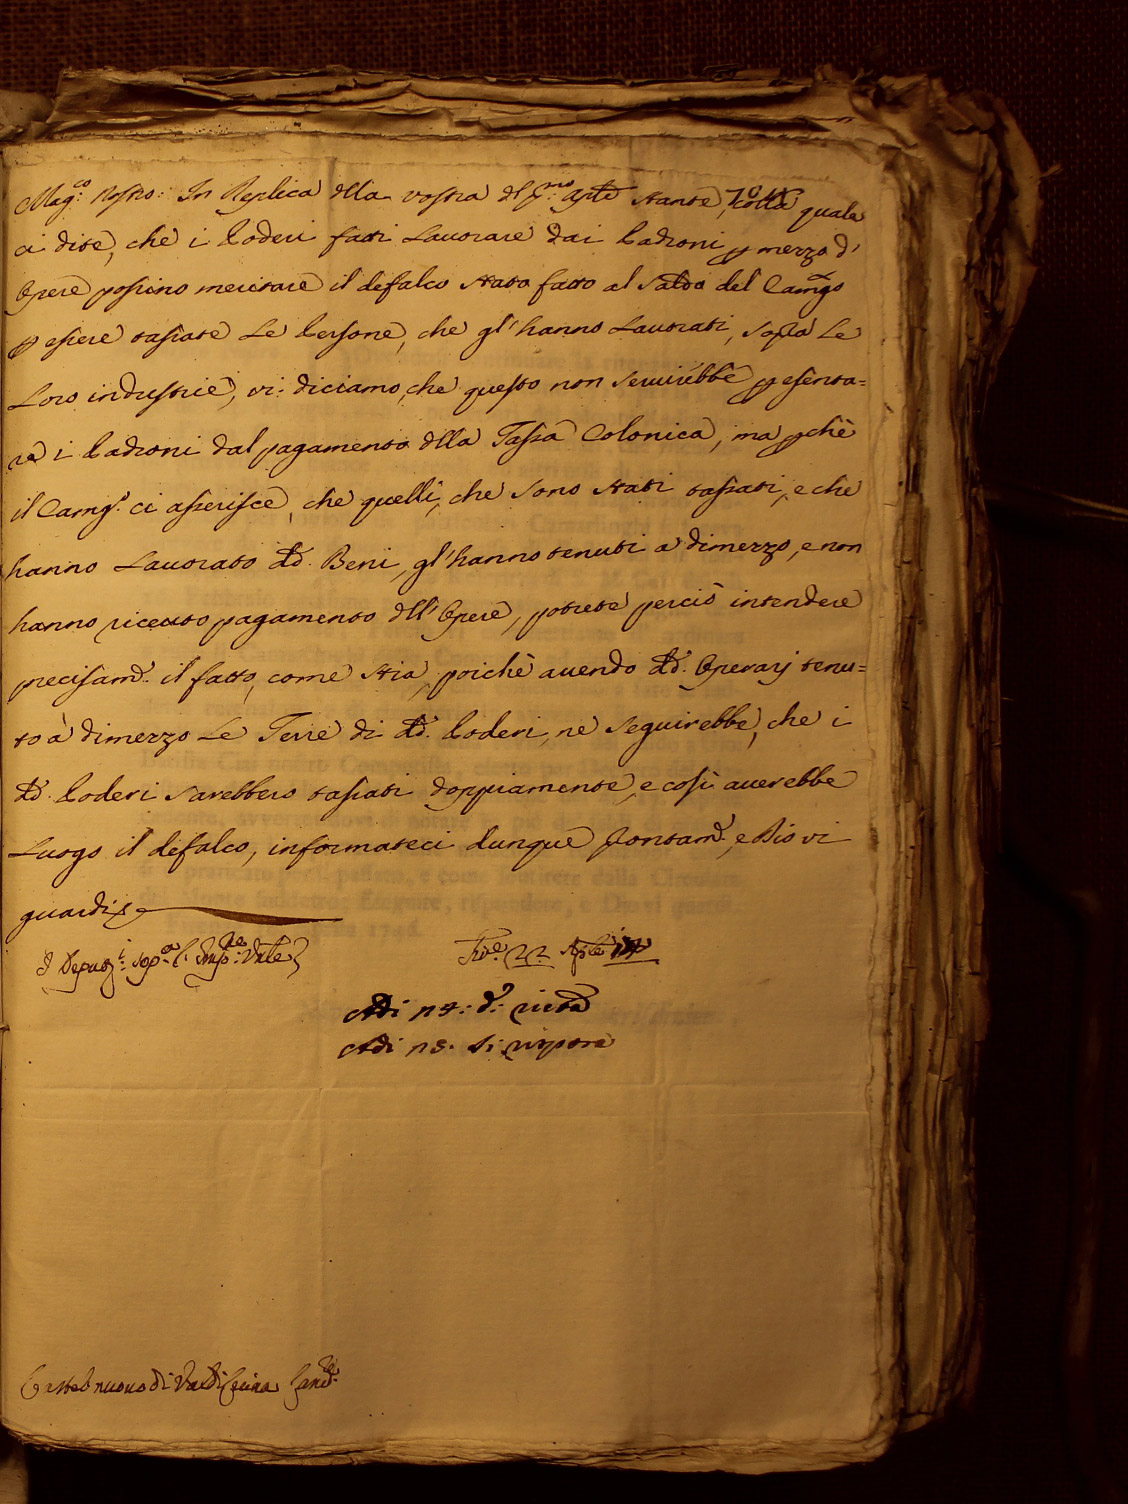 Mag:co Nostro: In Replica dlla vostra dl p:mo Aple stante, colla quale
ci dite, che i Poderi fatti Lavorare dai Padroni p mezzo d'
Opere possino meritare il defalco stato fatto al Saldo del Camgo
p essere tassate Le Persone, che gl'hanno Lavorati, sopra Le
Loro industrie, vi diciamo, che questo non servirebbe p esenta=
re i Padroni dal pagamento dlla Tassa Colonica, ma pchè
il Camg: ci asserisce, che quelli, che sono stati tassati, e che
hanno Lavorato dd. Beni, gl'hanno tenuti a dimezzo, e non
hanno riceuto pagamento dll'Opere, potrete perciò intendere
precisam: il fatto, come stia, poichè avendo dd. Operarj tenu=
to à dimezzo Le Terre di dd. Poderi, ne seguirebbe, che i
dd. Poderi sarebbero tassati doppiamente, e così averebbe
Luogo il defalco, informateci dunque prontam:, e Dio vi
guardi
I Deputi: sop:a l'
22 Aple
Adi 24: d:
Adi 25. Si rispose
Castelnuovo di Val di Cecina Canc:re